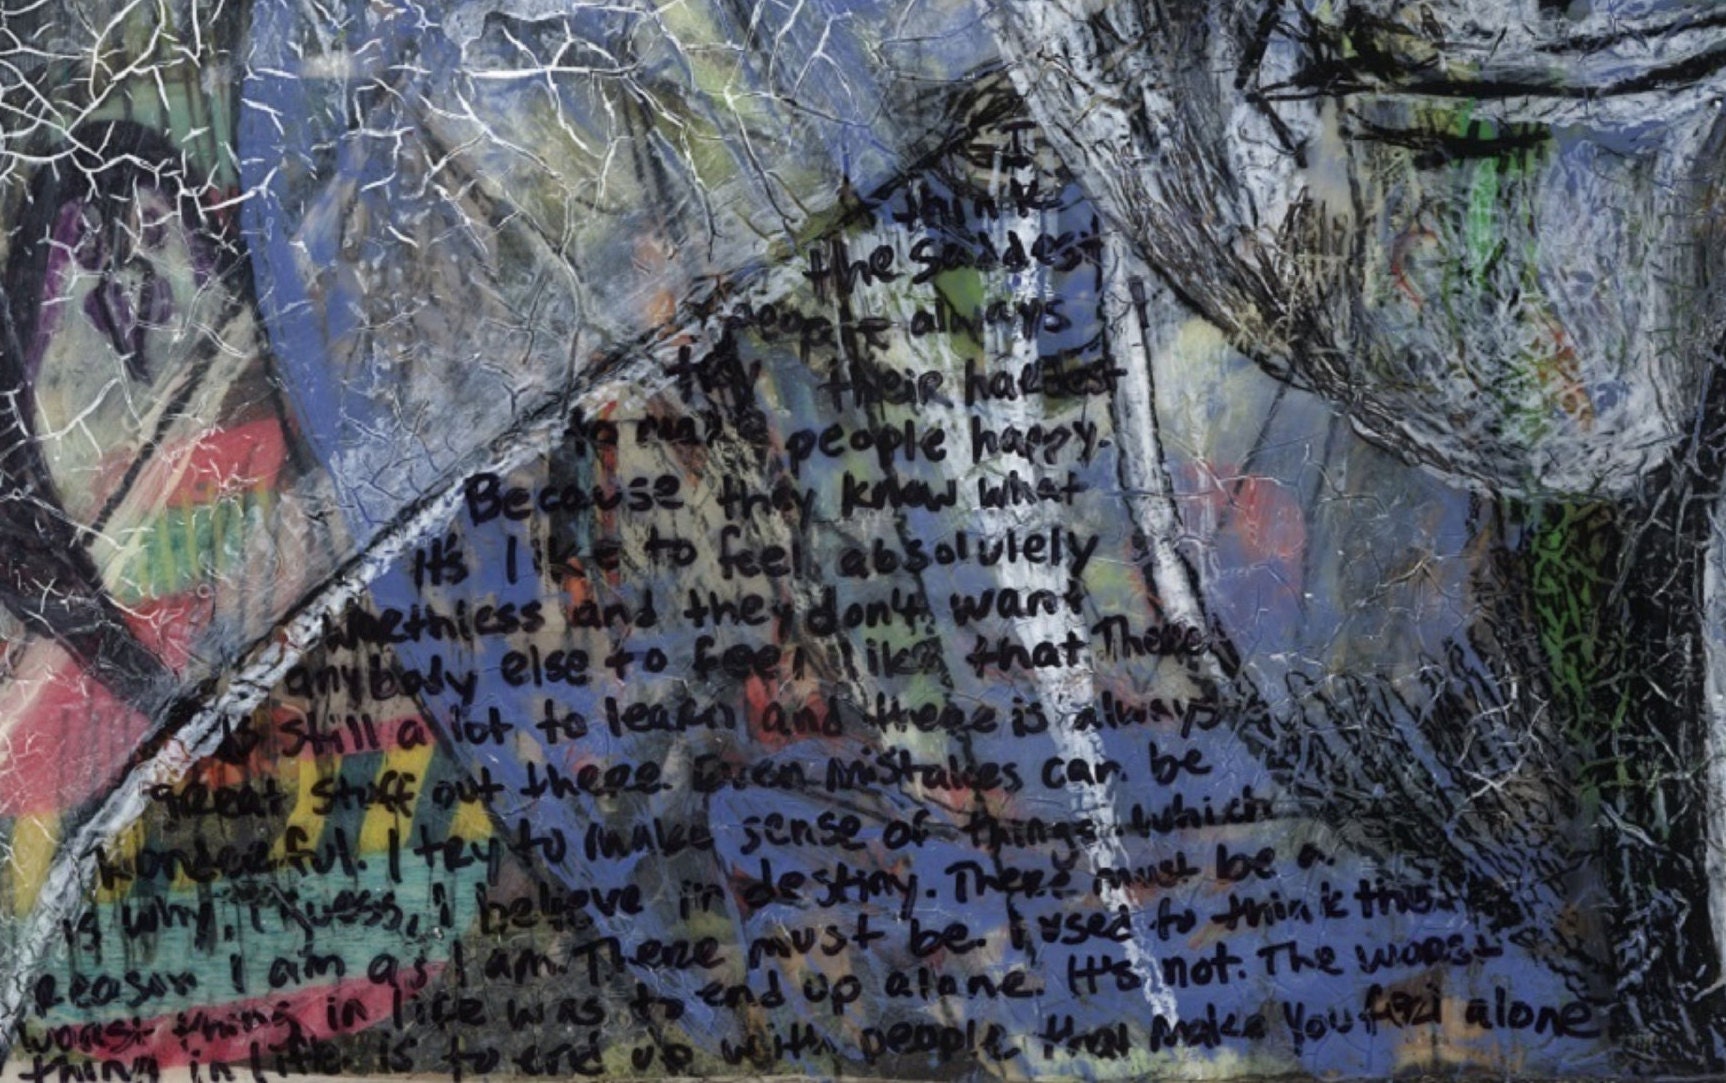 I
think
the saddest
people always
try their hardest
to make people happy.
Because they know what
it's like to feel absolutely
worthless and they don't want
anybody else to feel like that There
is still a lot to learn and there is always
great stuff out there. Even mistakes can be
wonderful. I try to make sense of things. which
is why, I guess, I believe in destiny. There must be a
reason I am as I am. There must be. I used to think the
worst thing in life was to end up alone. It's not. The worst
thing in life is to end up with people that make you feel alone